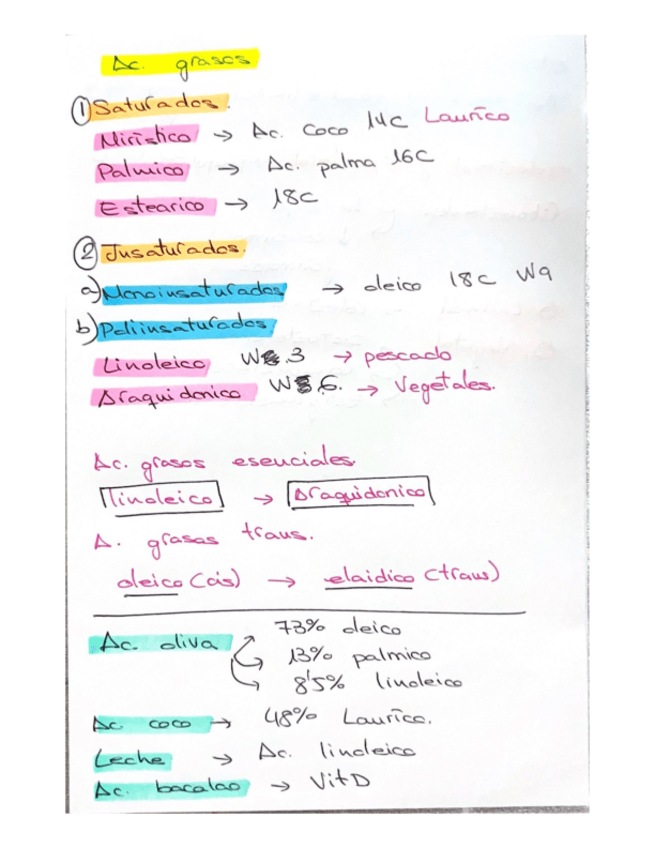 Ac. grasos
① Saturados.
Miristico → Ac. Coco 14C Laurico
Palmico → Ac. palma 16C
Estearico → 18C
② Insaturados.
a) Monoinsaturados → oleico 18C W9
b) Poliinsaturados
Linoleico W 3 → pescado
Araquidonico W 6. → Vegetales.
Ac. grasos esenciales
linoleico → Araquidonico
A. grasas trans.
oleico (cis) → elaidico (trans)
Ac. oliva → 73% oleico
→ 13% palmico
→ 8'5% linoleico
Ac. coco → 48% Laurico.
Leche → Ac. linoleico
Ac. bacalao → Vit D